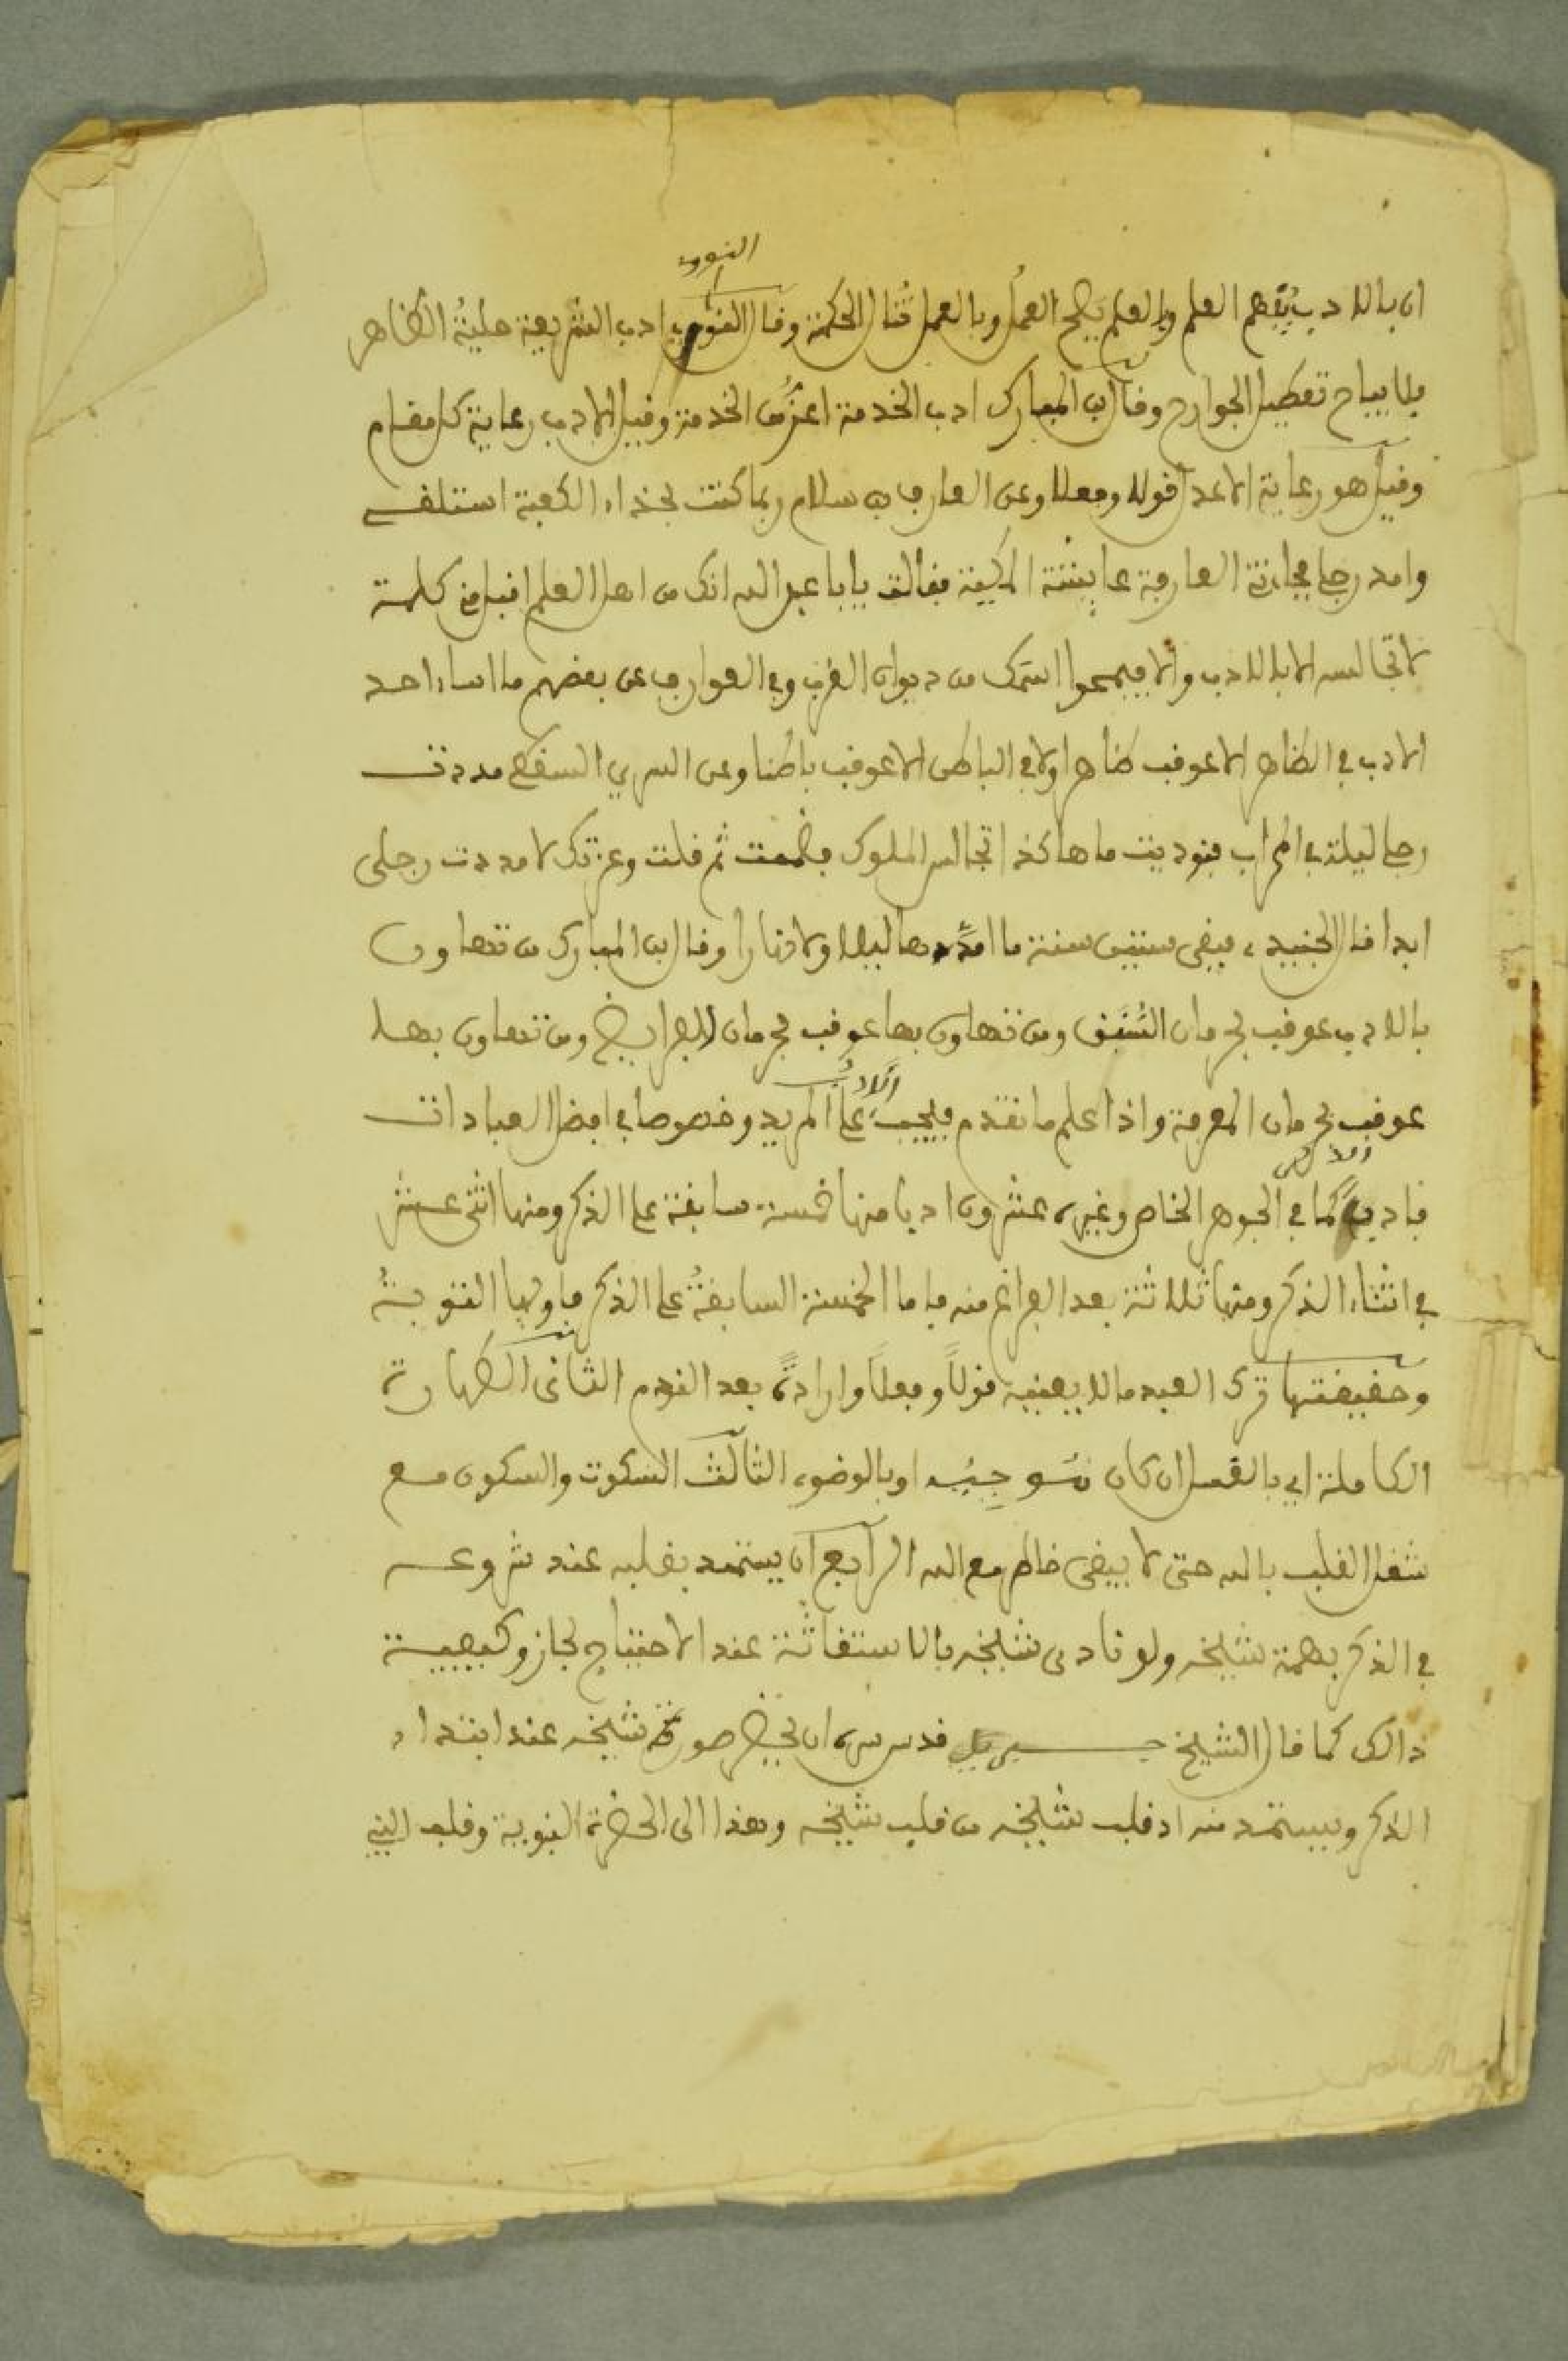 النووي
ان بالادب يُفهم العلم وبالعلم يصح العملُ وبالعمل تُنال الحكمة وقال النووي ادب الشريعة حليةُ الظاهر
فلا يباح تعطيل الجوارح وقال ابن المبارك ادب الخدمة اعزُّ من الخدمة وقيل الادب رعاية كل مقام
وقيل هو رعاية الاعدل قولا وفعلا وعن العارف بن سلام ربما كنت بحذاء الكعبة استلقى
وامد رجلي فجاءتني العارفة عايشة المكية فقالت يابا عبد الله انك من اهل العلم اقبل مني كلمة
لا تجالسه الا بالادب والا فيمحوا اسمك من ديوان القرب وفي العوارف عن بعضهم ما اساء احد
الادب في الظاهر الا عوقب ظاهرا ولا في الباطن الا عوقب باطنا وعن السري السقطي مددت
رجلي ليلة في المحراب فنوديت ما هاكذا تجالس الملوك فضممت ثم قلت وعزتك لا مددت رجلي
ابدا قال الجنيد فبقي ستين سنة ما امدّدها ليلا ولا نهارا وقال ابن المبارك من تهاون
بالادب عوقب بحرمان السُّنَن ومن تهاون بها عوقب بحرمان الفرايض ومن تهاون بها
عوقب بحرمان المعرفة واذا علم ما تقدم فيجب الادبُ على المريد وخصوصا في افضل العبادات
فادبه كما في الجوهر الخاص وغيره عشرون ادبا منها خمسة سابقة على الذكر ومنها اثنى عشر
في اثناء الذكر ومنها ثلاثة بعد الفراغ منه فاما الخمسة السابقةُ على الذكر فاولها التوبةُ
وحقيقتها ترك العبد ما لا يعنيه قولاً وفعلاً وارادةً بعد الندم الثاني الطهارة
الكاملة اي بالغسل ان كان او بالوضوء الثالث السكوت والسكون مع
شغل القلب بالله حتى لا يبقى خاطر مع الله الرابع ان يستمد بقلبه عند شروعه
في الذكر بهمة شيخه ولو نادى شيخه بالاستغاثة عند الاحتياج لجاز وكيفية
ذالك كما قال الشيخ جبريل قدس سره ان يحضر صورة شيخه عند ابتداء
الذكر ويستمد منه اذ قلب شيخه من قلب شيخه وهذا الى الحضرة النبوية وقلب النبي